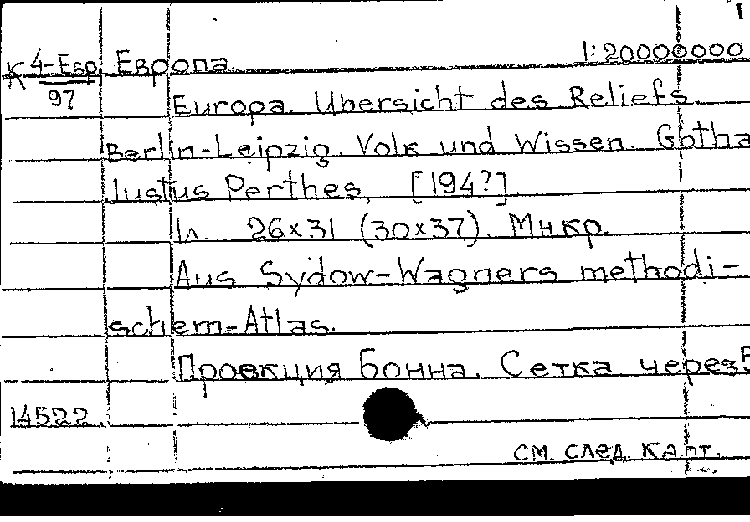 К 4-Евр Европа. 1:20000000
97
Europa. Übersicht des Reliefs.
Berlin-Leipzig. Volk und Wissen. Gotha
Justus Perthes, [194?].
1л. 26×31 (30×37). Мнкр.
Aus Sydow-Wagners methodi-
schem-Atlas.
Проекция Бонна. Сетка через 5
14522
см. след. карт.